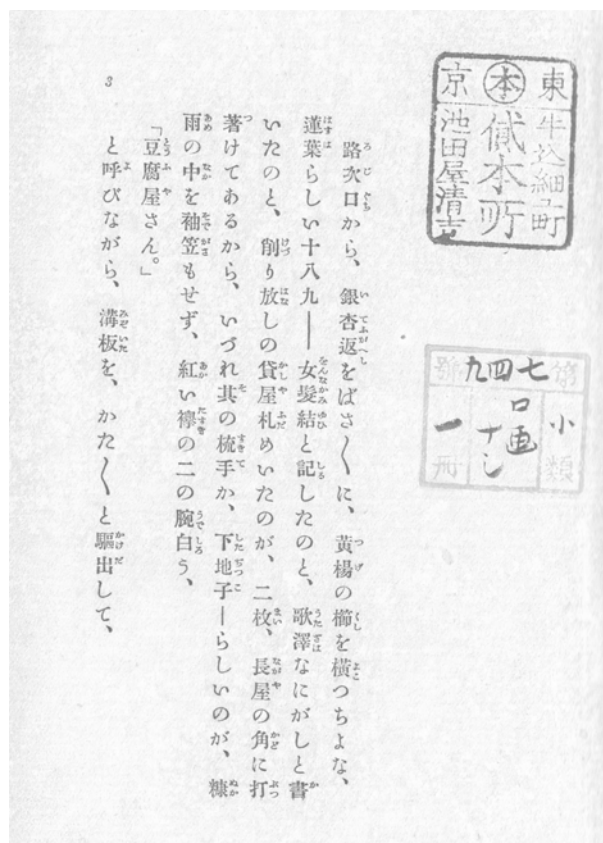 東京
牛込細工町
㊍貸本所
池田屋清吉
第 小 類
七四九號
口画ナシ
一冊
路次口から、銀杏返をばさ〱に、黄楊の櫛を横つちよな、
蓮葉らしい十八九――女髪結と記したのと、歌澤なにがしと書
いたのと、削り放しの貸屋札めいたのが、二枚、長屋の角に打
著けてあるから、いづれ其の梳手か、下地子―らしいのが、糠
雨の中を袖笠もせず、紅い襷の二の腕白う、
「豆腐屋さん。」
と呼びながら、溝板を、かた〱と驅出して、
3